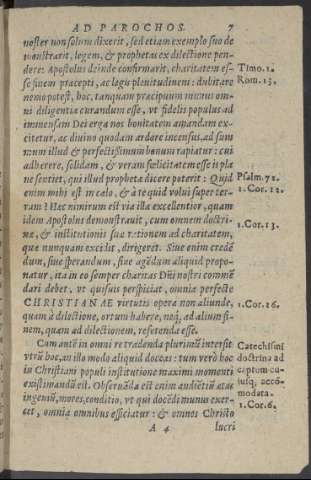 AD PAROCHOS. 7
noster non solum dixerit, sed etiam exemplo suo de
monstrarit, legem, & prophetas ex dilectione pen-
dere: Apostolus deinde confirmarit, charitatem es-
se finem præcepti, ac legis plenitudinem: dubitare
nemo potest, hoc, tanquam præcipuum munus om-
ni diligentia curandum esse, vt fidelis populus ad
immensam Dei erga nos bonitatem amandam ex-
citetur, ac diuino quodam ardore incensus, ad sum
mum illud & perfectissimum bonum rapiatur: cui
adhærere, solidam, & veram fœlicitatem esse is pla
ne sentiet, qui illud prophetæ dicere poterit: Quid
enim mihi est in cælo, & à te quid volui super ter-
ram? Hæc nimirum est via illa excellentior, quam
idem Apostolus demonstrauit, cum omnem doctri-
næ, & institutionis suæ rationem ad charitatem,
quæ nunquam excidit, dirigeret. Siue enim credē
dum, siue sperandum, siue agēdum aliquid propo-
natur, ita in eo semper charitas Dñi nostri commē
dari debet, vt quiuis perspiciat, omnia perfectæ
CHRISTIANAE virtutis opera non aliunde,
quam à dilectione, ortum habere, neq; ad alium fi-
nem, quam ad dilectionem, referenda esse.
Cum autē in omni re tradenda plurimū intersit
vtrū hoc, an illo modo aliquid doceas: tum verò hoc
in Christiani populi institutione maximi momenti
existimandū est. Obseruāda est enim auditiū ætas
ingeniū, mores, conditio, vt qui docēdi munus exer-
cet, omnia omnibus efficiatur: & omnes Christo
A 4 lucri
Timo. 1.
Rom. 13.
Psalm. 72.
1. Cor. 12.
1. Cor. 13.
1. Cor. 16.
Catechismi
doctrina ad
captum cu-
iusq; accō-
modata.
1. Cor. 6.